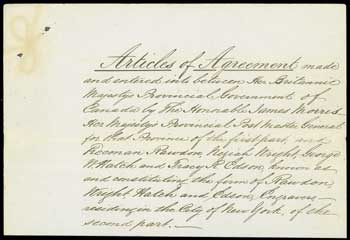 Articles of Agreement made
and entered into between Her Britannic
Majestys Provincial Government of
Canada by The Honorable James Morris
Her Majesty's Provincial Post Master General
for that Province of the first part, and
Freeman Rawdon, Neziah Wright, George
W Hatch and Tracy R. Edson, known as
and constituting the firm of Rawdon,
Wright, Hatch and Edson, Engravers
residing in the City of New York, of the
second part.—